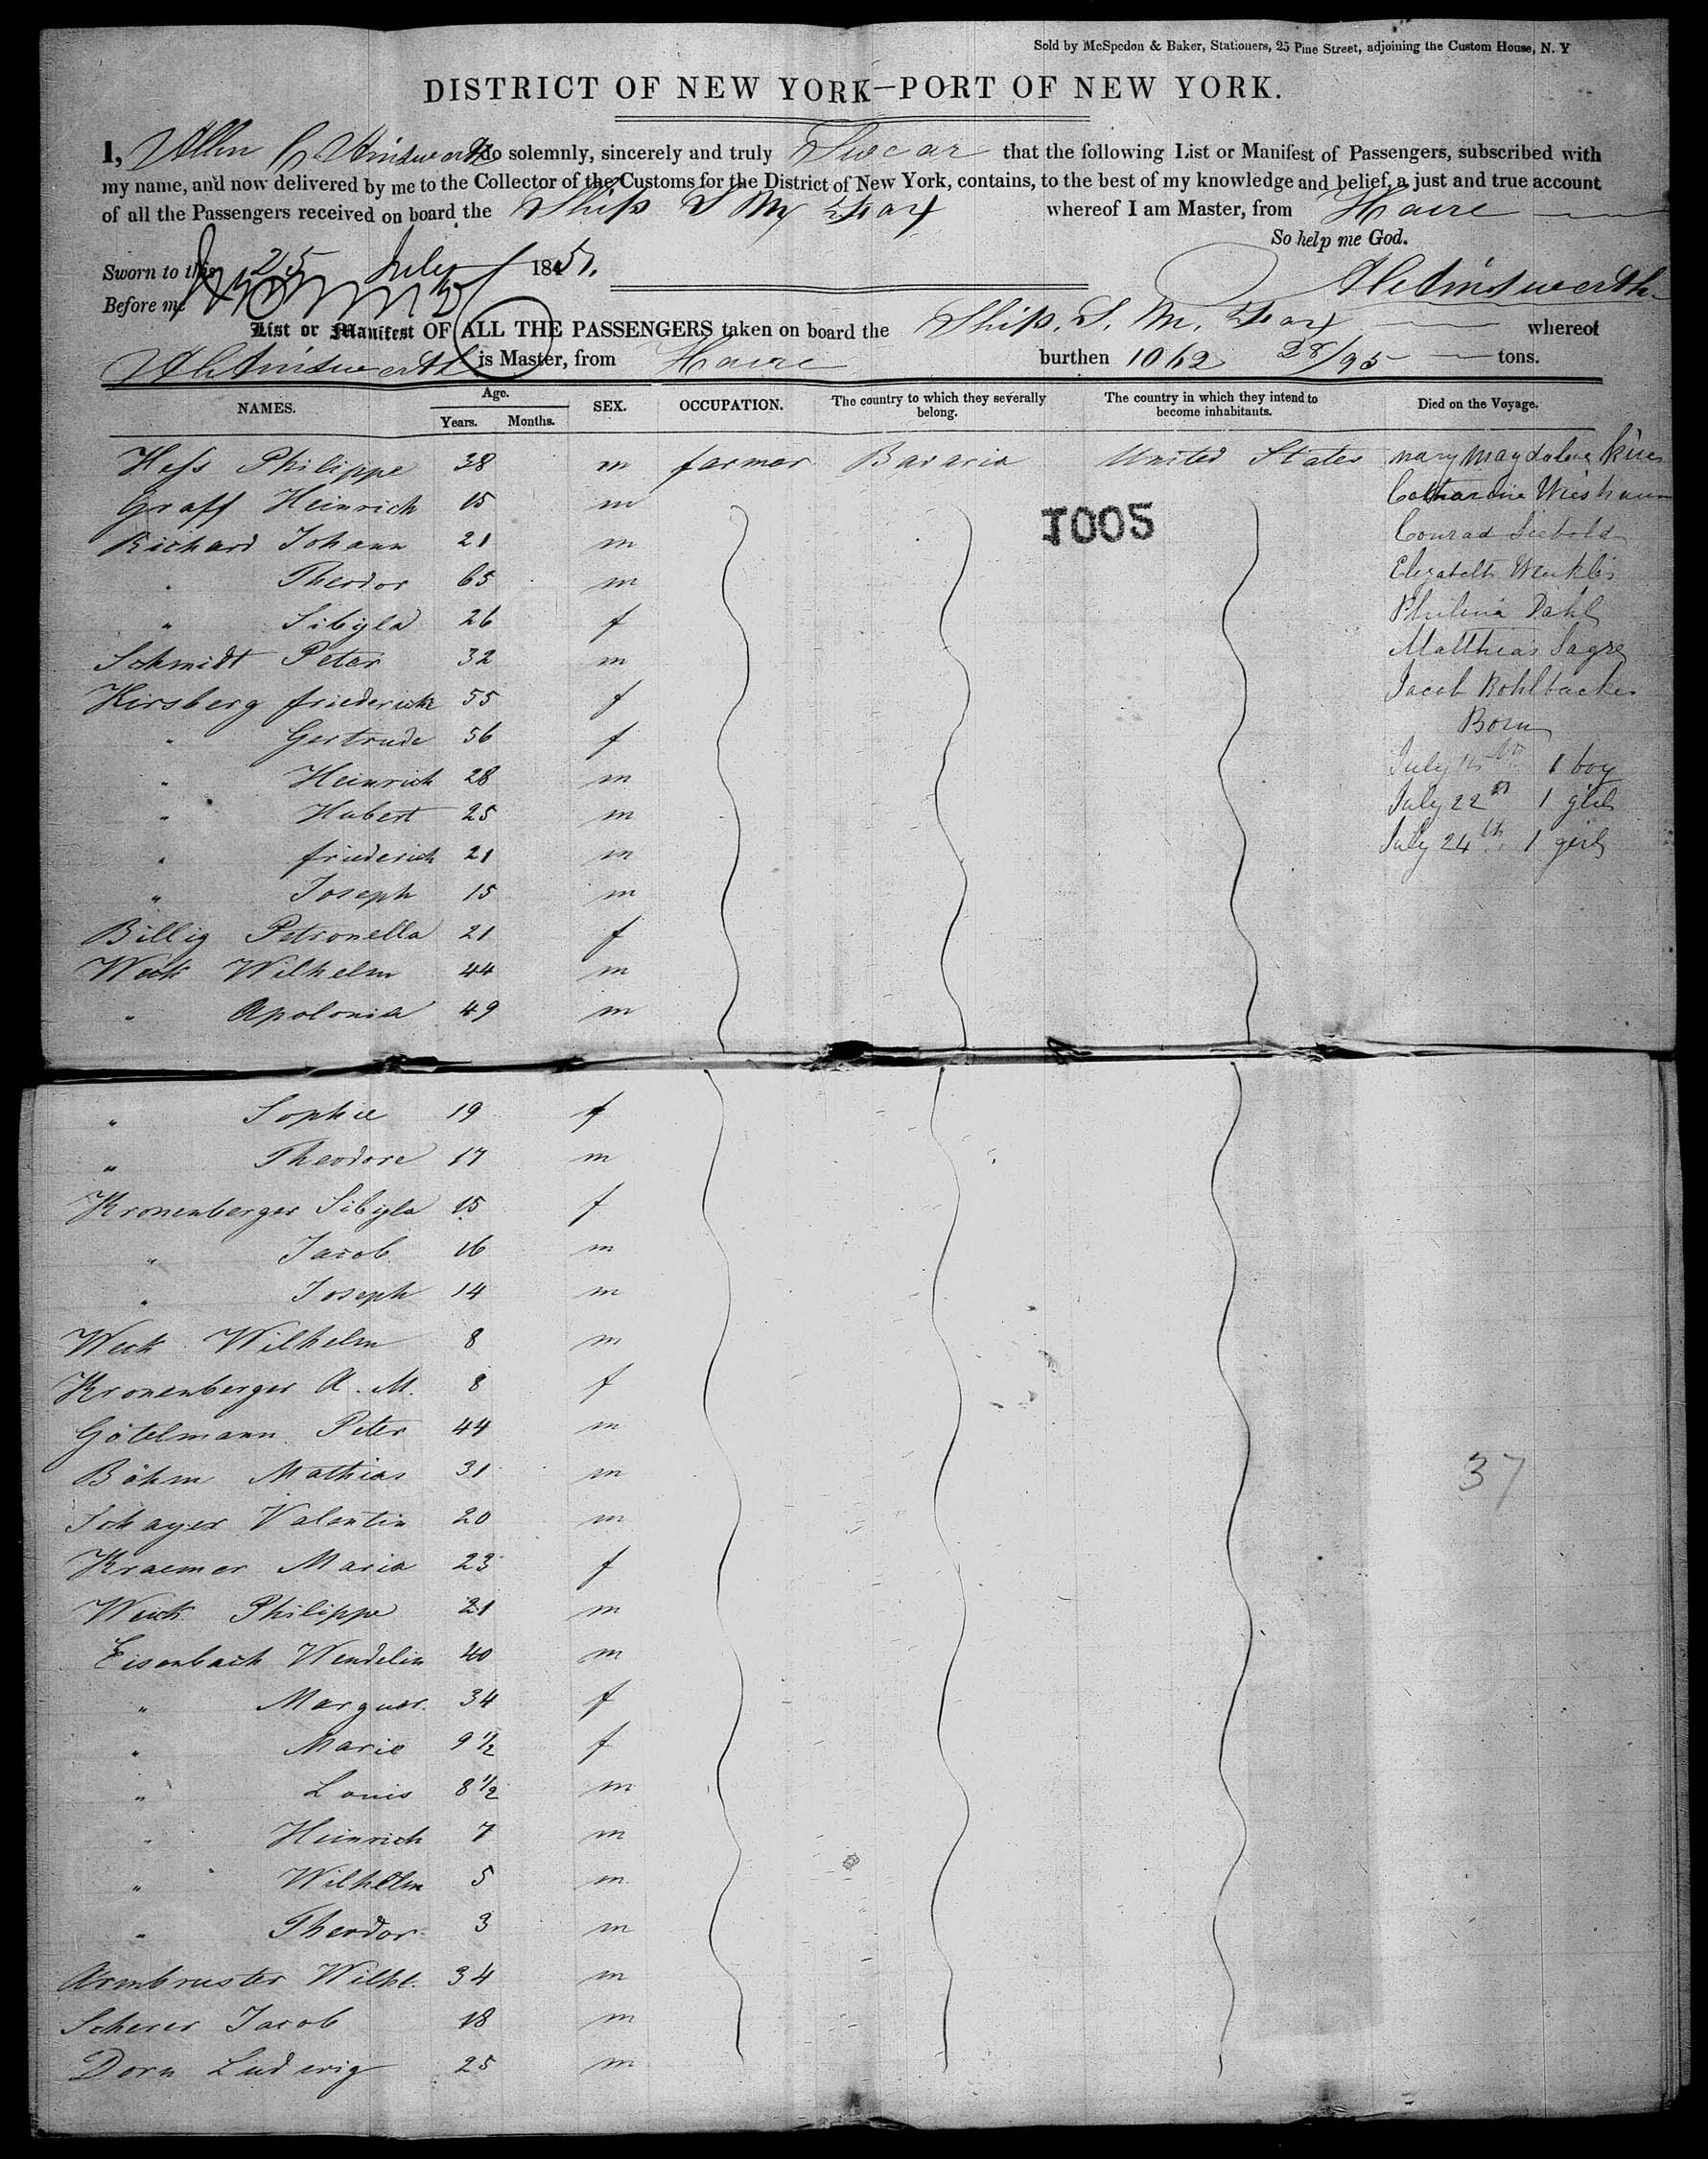 Sold by McSpedon & Baker, Stationers, 25 Pine Street, adjoining the Custom House, N. Y
DISTRICT OF NEW YORK—PORT OF NEW YORK.
I, Allen C Ainsworth do solemnly, sincerely and truly Swear that the following List or Manifest of Passengers, subscribed with
my name, and now delivered by me to the Collector of the Customs for the District of New York, contains, to the best of my knowledge and belief, a just and true account
of all the Passengers received on board the Ship S M Fox whereof I am Master, from Havre
So help me God.
Sworn to this 25 July 1851.
A C Ainsworth
Before me
List or Manifest OF ALL THE PASSENGERS taken on board the Ship. S. M. Fox whereof
A C Ainsworth is Master, from Havre burthen 1062 28/95 tons.
NAMES. Age. Years. Months. SEX. OCCUPATION. The country to which they severally belong. The country in which they intend to become inhabitants. Died on the Voyage.
Hess Philippe 38 m farmer Bavaria United States Mary Magdalena
Graff Heinrich 15 m Catharine
1005
Richard Johann 21 m Conrad Siebold
" Theodor 65 m Elizabeth
" Sibyla 26 f Philena Dahl
Schmidt Peter 32 m Matthias
Hirsberg friedericke 55 f Jacob Rohlbacker
" Gertrude 56 f Born
" Heinrich 28 m July 15th 1 boy
" Hubert 25 m July 22d 1 girl
" friederich 21 m July 24th 1 girl
" Joseph 15 m
Billig Petronella 21 f
Weck Wilhelm 44 m
" Apolonia 49 m
" Sophie 19 f
" Theodore 17 m
Kronenberger Sibyla 15 f
" Jacob 16 m
" Joseph 14 m
Weck Wilhelm 8 m
Kronenberger A. M. 8 f
Götelmann Peter 44 m
Böhm Mathias 31 m
37
Schayer Valentin 20 m
Kraemer Maria 23 f
Weick Philippe 21 m
Eisenbach Wendelin 40 m
" Marguer. 34 f
" Marie 9 1/2 f
" Louis 8 1/2 m
" Heinrich 7 m
" Wilhelm 5 m
" Theodor 3 m
Armbruster Wilhl. 34 m
Scherer Jacob 18 m
Dorn Ludwig 25 m